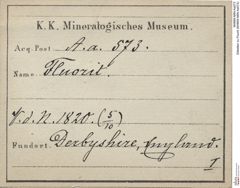 K.K. Mineralogisches Museum.
Acq. Post A.a. 573.
Name Fluorit.
V.d.N. 1820. (5/10)
Fundort. Derbyshire, England.
I